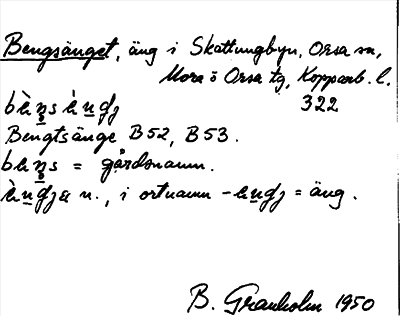 Bengsänget, äng i Skattungbyn, Orsa sn,
Mora o Orsa tg, Kopparb. l.
322
Bengtsänge B52, B53.
= gårdsnamn.
n., i ortnamn = äng.
B. Granholm 1950